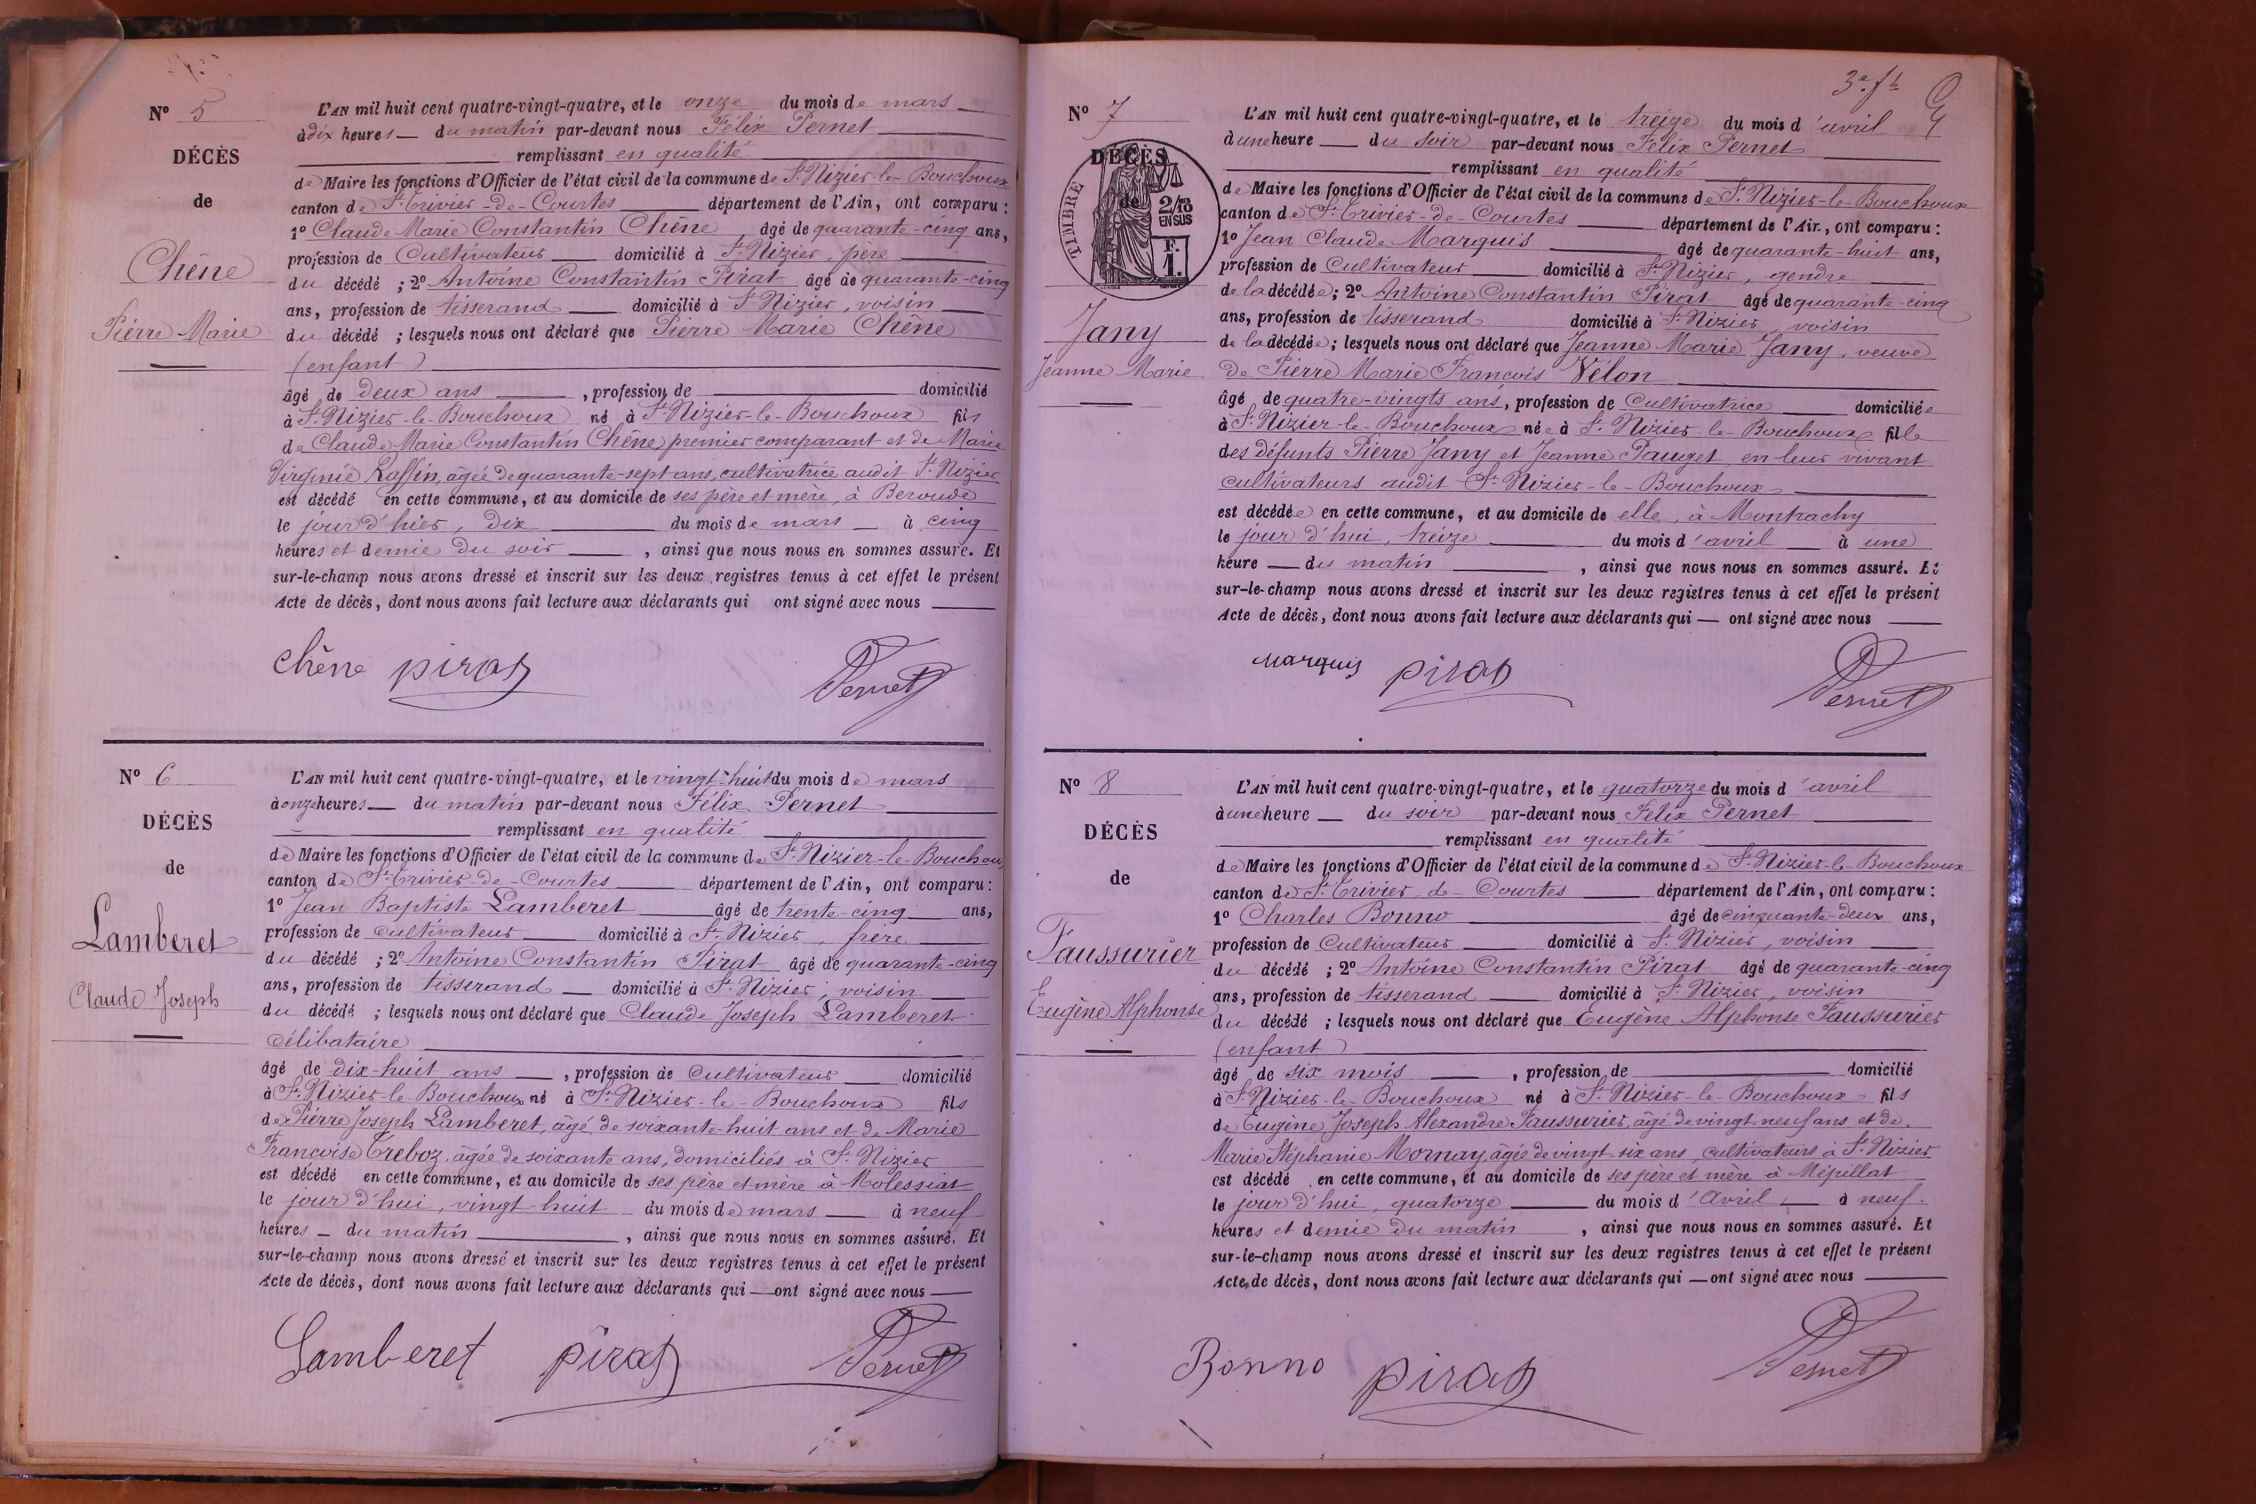 N° 5
DÉCÈS
de
Chêne
Pierre Marie
L'AN mil huit cent quatre-vingt-quatre, et le onze du mois de mars
à dix heures du matin par-devant nous Félix Pernet
remplissant en qualité
de Maire les fonctions d'Officier de l'état civil de la commune de St Nizier-le-Bouchoux
canton de St Trivier-de-Courtes département de l'Ain, ont comparu :
1° Claude Marie Constantin Chêne, âgé de quarante-cinq ans,
profession de Cultivateur domicilié à St Nizier, père
du décédé ; 2° Antoine Constantin Pirat âgé de quarante-cinq
ans, profession de tisserand domicilié à St Nizier, voisin
du décédé ; lesquels nous ont déclaré que Pierre Marie Chêne
(enfant)
âgé de deux ans, profession de domicilié
à St Nizier-le-Bouchoux né à St Nizier-le-Bouchoux fils
de Claude Marie Constantin Chêne, premier comparant et de Marie
Virginie Raffin, âgée de quarante-sept ans, cultivatrice audit St Nizier
est décédé en cette commune, et au domicile de ses père et mère, à Beroude
le jour d'hier, dix du mois de mars à cinq
heures et demie du soir, ainsi que nous nous en sommes assuré. Et
sur-le-champ nous avons dressé et inscrit sur les deux registres tenus à cet effet le présent
Acte de décès, dont nous avons fait lecture aux déclarants qui ont signé avec nous
Chêne pirat Pernet
N° 6
DÉCÈS
de
Lamberet
Claude Joseph
L'AN mil huit cent quatre-vingt-quatre, et le vingt-huit du mois de mars
à onze heures du matin par-devant nous Félix Pernet
remplissant en qualité
de Maire les fonctions d'Officier de l'état civil de la commune de St Nizier-le-Bouchoux
canton de St Trivier-de-Courtes département de l'Ain, ont comparu :
1° Jean Baptiste Lamberet âgé de trente-cinq ans,
profession de cultivateur domicilié à St Nizier, frère
du décédé ; 2° Antoine Constantin Pirat âgé de quarante-cinq
ans, profession de tisserand domicilié à St Nizier, voisin
du décédé ; lesquels nous ont déclaré que Claude Joseph Lamberet
célibataire
âgé de dix-huit ans, profession de Cultivateur domicilié
à St Nizier-le-Bouchoux né à St Nizier-le-Bouchoux fils
de Pierre Joseph Lamberet, âgé de soixante-huit ans et de Marie
Françoise Créboz, âgée de soixante ans, domiciliés à St Nizier
est décédé en cette commune, et au domicile de ses père et mère à Molessiat
le jour d'hui, vingt-huit du mois de mars à neuf
heures du matin, ainsi que nous nous en sommes assuré. Et
sur-le-champ nous avons dressé et inscrit sur les deux registres tenus à cet effet le présent
Acte de décès, dont nous avons fait lecture aux déclarants qui ont signé avec nous
Lamberet pirat Pernet
3e ft
N° 7
DÉCÈS
de
TIMBRE
2/10
EN SUS
F.
1.
Jany
Jeanne Marie
L'AN mil huit cent quatre-vingt-quatre, et le treize du mois d'avril
à une heure du soir par-devant nous Félix Pernet
remplissant en qualité
de Maire les fonctions d'Officier de l'état civil de la commune de St Nizier-le-Bouchoux
canton de St Trivier-de-Courtes département de l'Ain, ont comparu :
1° Jean Claude Marquis âgé de quarante-huit ans,
profession de Cultivateur domicilié à St Nizier, gendre
de la décédée ; 2° Antoine Constantin Pirat âgé de quarante-cinq
ans, profession de tisserand domicilié à St Nizier, voisin
de la décédée ; lesquels nous ont déclaré que Jeanne Marie Jany, veuve
de Pierre Marie François Vélon
âgé de quatre-vingts ans, profession de Cultivatrice domiciliée
à St Nizier-le-Bouchoux née à St Nizier-le-Bouchoux fille
des défunts Pierre Jany et Jeanne Pauget en leur vivant
cultivateurs audit St Nizier-le-Bouchoux
est décédée en cette commune, et au domicile de elle, à Montrachy
le jour d'hui, treize du mois d'avril à une
heure du matin, ainsi que nous nous en sommes assuré. Et
sur-le-champ nous avons dressé et inscrit sur les deux registres tenus à cet effet le présent
Acte de décès, dont nous avons fait lecture aux déclarants qui ont signé avec nous
Marquis pirat Pernet
N° 8
DÉCÈS
de
Faussurier
Eugène Alphonse
L'AN mil huit cent quatre-vingt-quatre, et le quatorze du mois d'avril
à une heure du soir par-devant nous Félix Pernet
remplissant en qualité
de Maire les fonctions d'Officier de l'état civil de la commune de St Nizier-le-Bouchoux
canton de St Trivier-de-Courtes département de l'Ain, ont comparu :
1° Charles Bonno âgé de cinquante-deux ans,
profession de Cultivateur domicilié à St Nizier, voisin
du décédé ; 2° Antoine Constantin Pirat âgé de quarante-cinq
ans, profession de tisserand domicilié à St Nizier, voisin
du décédé ; lesquels nous ont déclaré que Eugène Alphonse Faussurier
(enfant)
âgé de six mois, profession de domicilié
à St Nizier-le-Bouchoux né à St Nizier-le-Bouchoux fils
de Eugène Joseph Alexandre Faussurier, âgé de vingt-neuf ans et de
Marie Stéphanie Mornay, âgée de vingt-six ans, cultivateurs à St Nizier
est décédé en cette commune, et au domicile de ses père et mère à Mépillat
le jour d'hui, quatorze du mois d'Avril à neuf
heures et demie du matin, ainsi que nous nous en sommes assuré. Et
sur-le-champ nous avons dressé et inscrit sur les deux registres tenus à cet effet le présent
Acte de décès, dont nous avons fait lecture aux déclarants qui ont signé avec nous
Bonno pirat Pernet